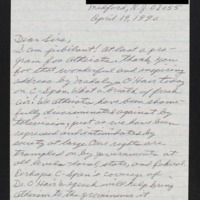 Medford, N.J. 08055
April 19, 1990
Dear Sirs,
I am jubilant! At last a pro-
gram for Atheists. Thank you
for that wonderful and inspiring
address by Madalyn O'Hair
on C-Span. What a breath of fresh
air. We atheists have been shame-
fully discriminated against by
television, just as we have been
repressed and discriminated by
society at large. Our rights are
trampled on by governments at
all levels, local, state, and federal.
Perhaps C-Span's coverage of
O'Hair's speech will help bring
Atheism to the